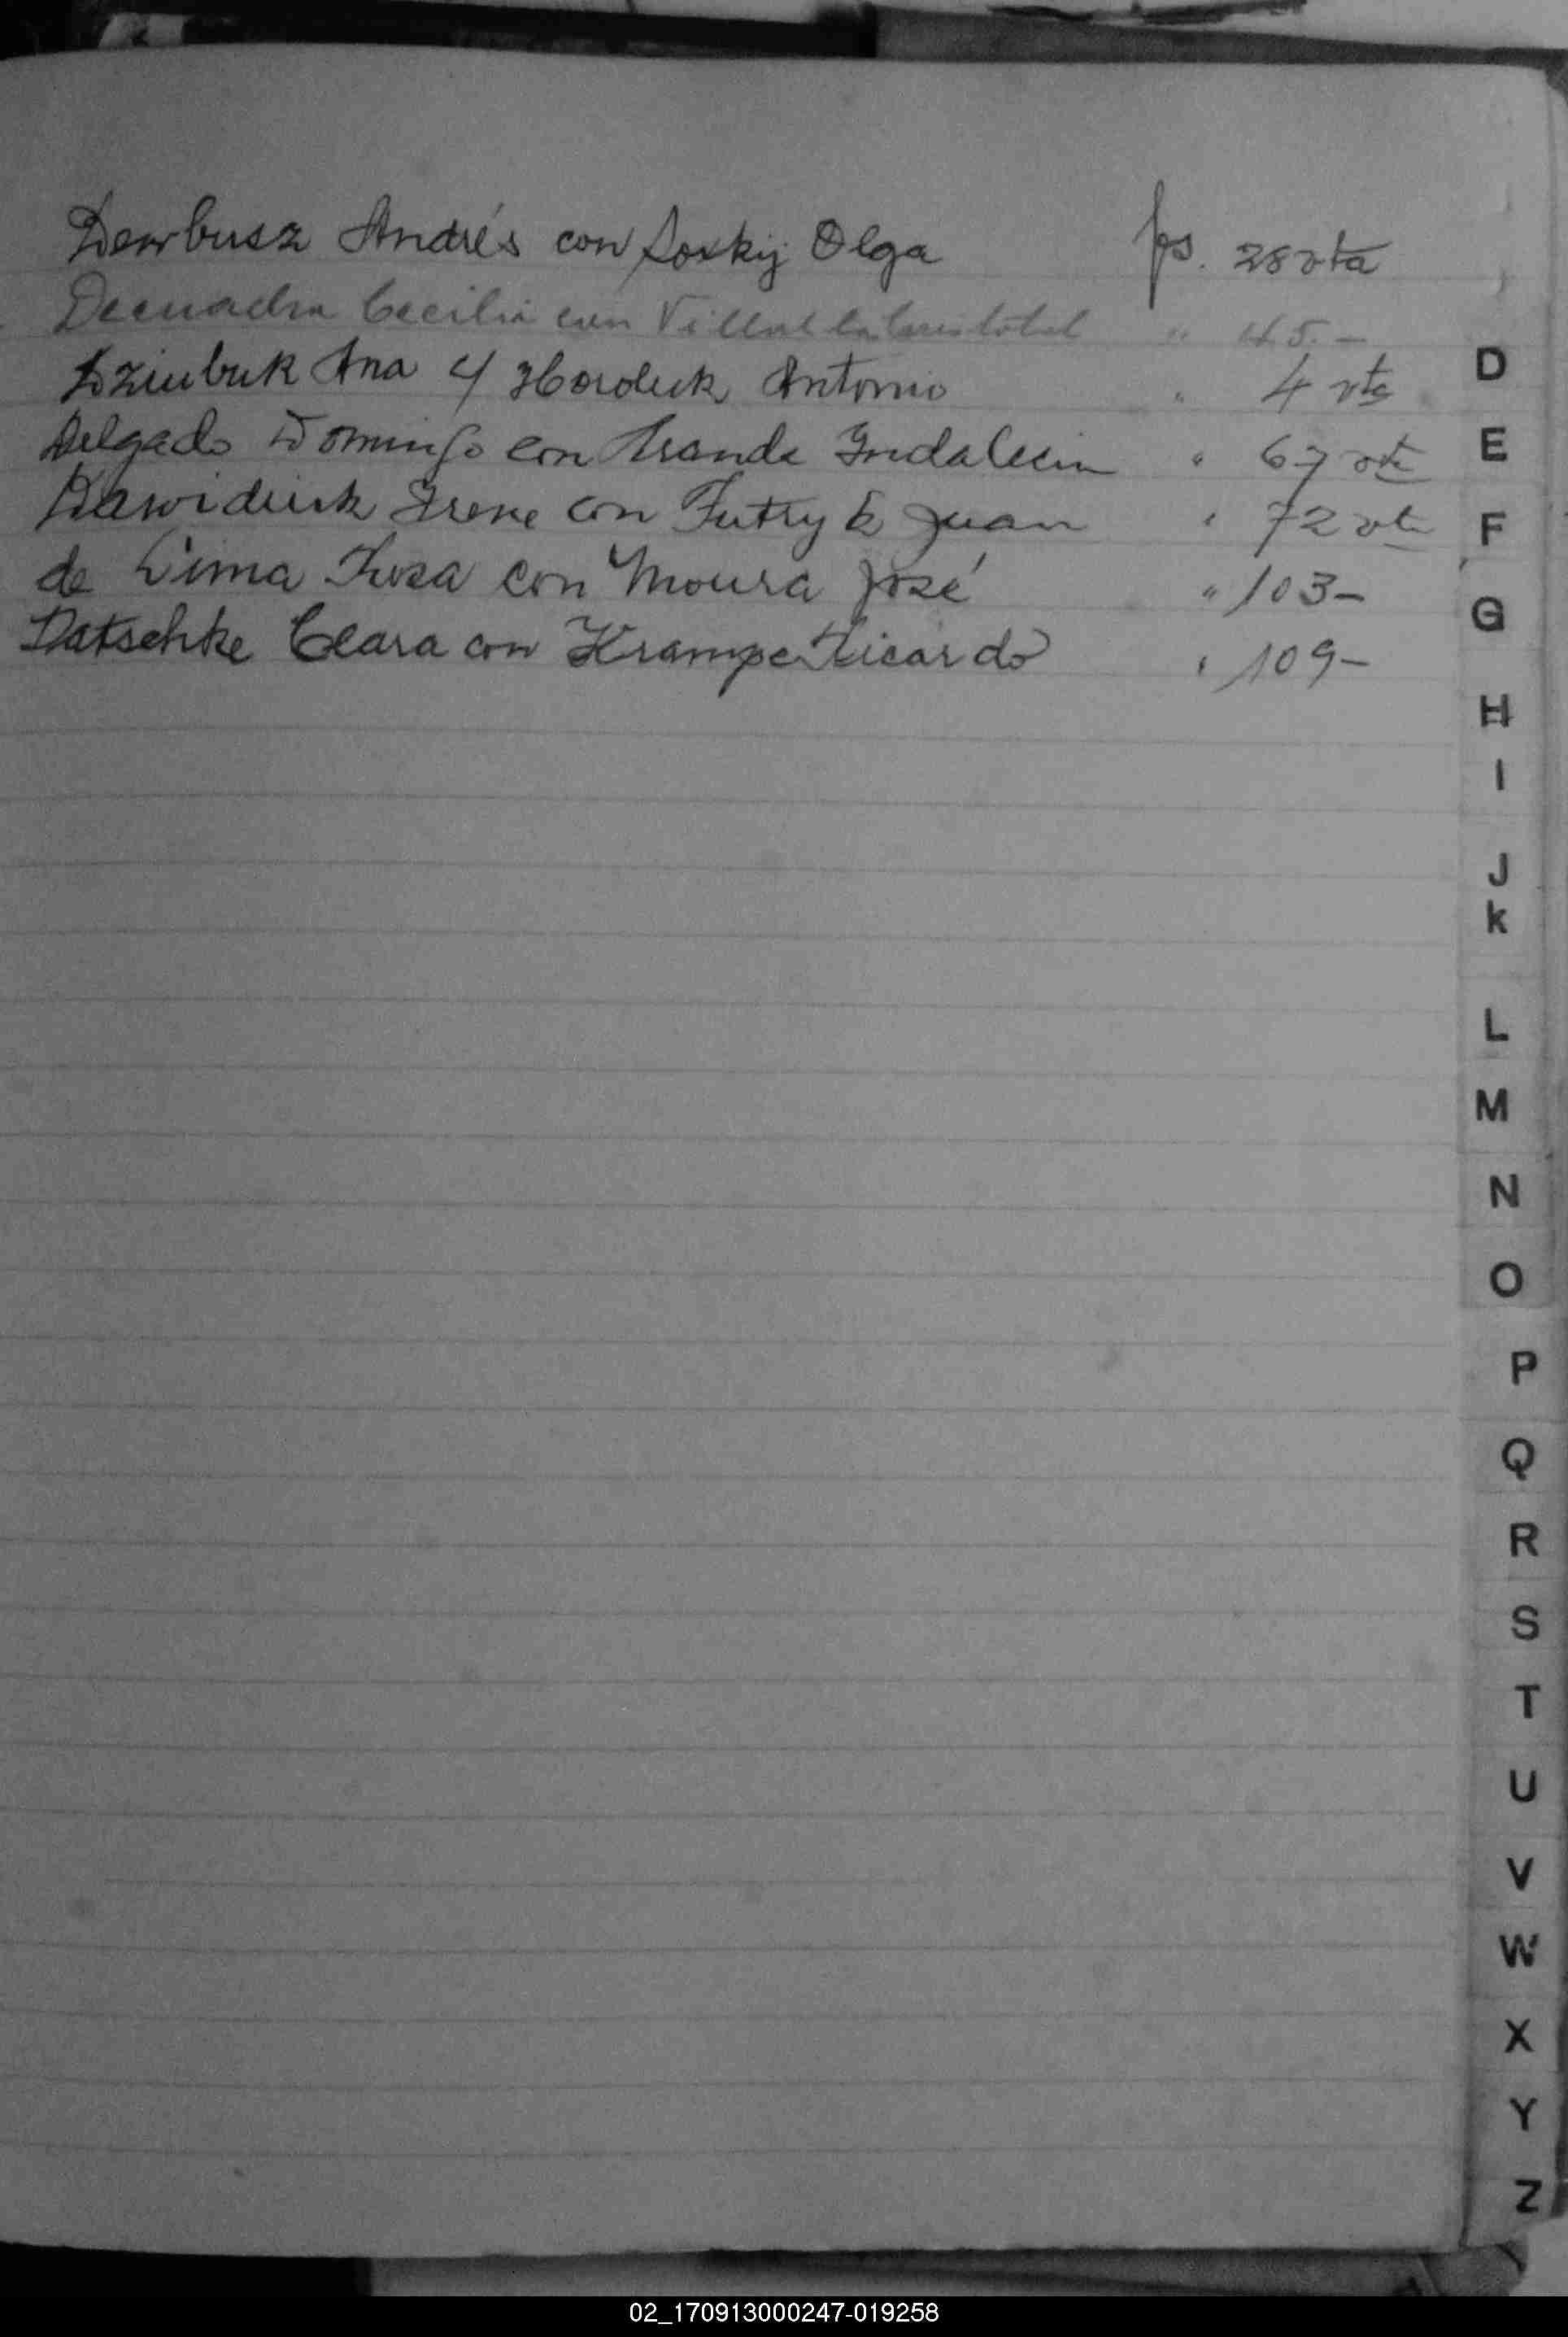 Dembusz Andrés con Soskij Olga fs. 28 vta
Decuadra Cecilia con " 45.-
Dziubuk Ana c/ Horduk Antonio " 4 vta
Delgado Domingo con Aranda Indalecia " 67 vta
Dawidiuk Irene con Futryk Juan " 72 vta
de Lima Rosa con Moura José " 103-
Datschke Clara con Krampe Ricardo " 109-
D
E
F
G
H
I
J
k
L
M
N
O
P
Q
R
S
T
U
V
W
X
Y
Z
02_170913000247-019258